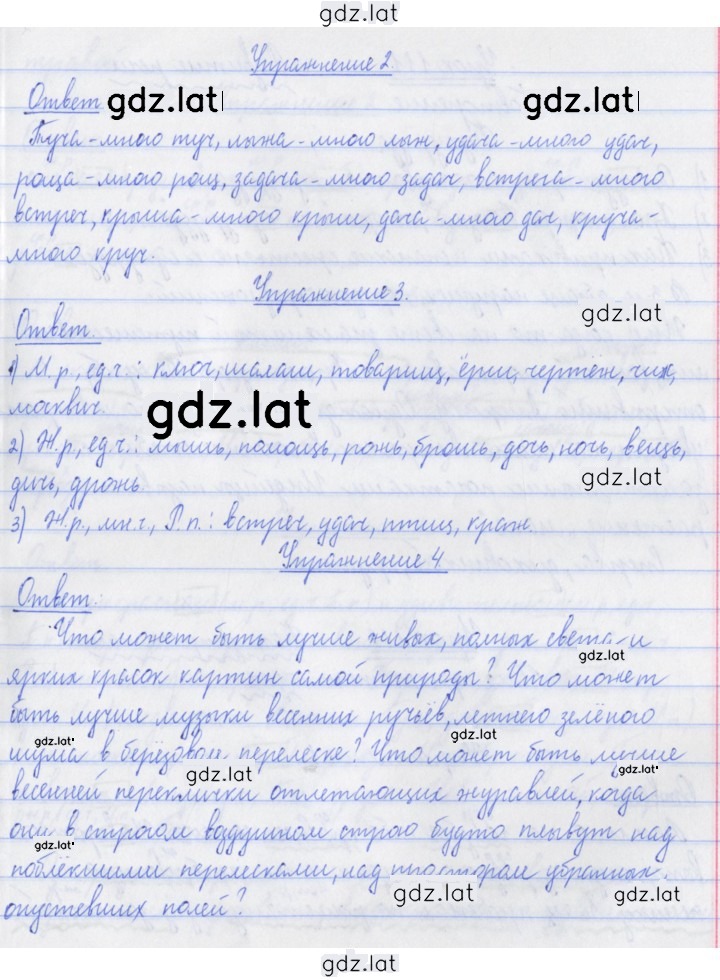 gdz.lat
Упражнение 2
Ответ gdz.lat gdz.lat
Туча – много туч, лыжа – много лыж, удача – много удач,
роща – много рощ, задача – много задач, встреча – много
встреч, крыша – много крыш, дача – много дач, круча –
много круч.
Упражнение 3.
gdz.lat
Ответ
1) М.р., ед.ч.: ключ, шалаш, товарищ, ёрш, чертёж, чиж,
москвич.
gdz.lat
2) Ж.р., ед.ч.: мышь, помощь, рожь, брошь, дочь, ночь, вещь,
gdz.lat
дичь, дрожь
3) Ж.р., мн.ч., Р.п.: встреч, удач, птиц, краж
Упражнение 4
Ответ.
Что может быть лучше живых, полных света и
gdz.lat
ярких красок картин самой природы? Что может
быть лучше музыки весенних ручьёв, летнего зелёного
gdz.lat gdz.lat
шума в берёзовом перелеске? Что может быть лучше
gdz.lat gdz.lat
весенней переклички отлетающих журавлей, когда
они в строгом воздушном строю будто плывут над
gdz.lat
поблёкшими перелесками, над простором убранных,
gdz.lat gdz.lat
опустевших полей?
gdz.lat